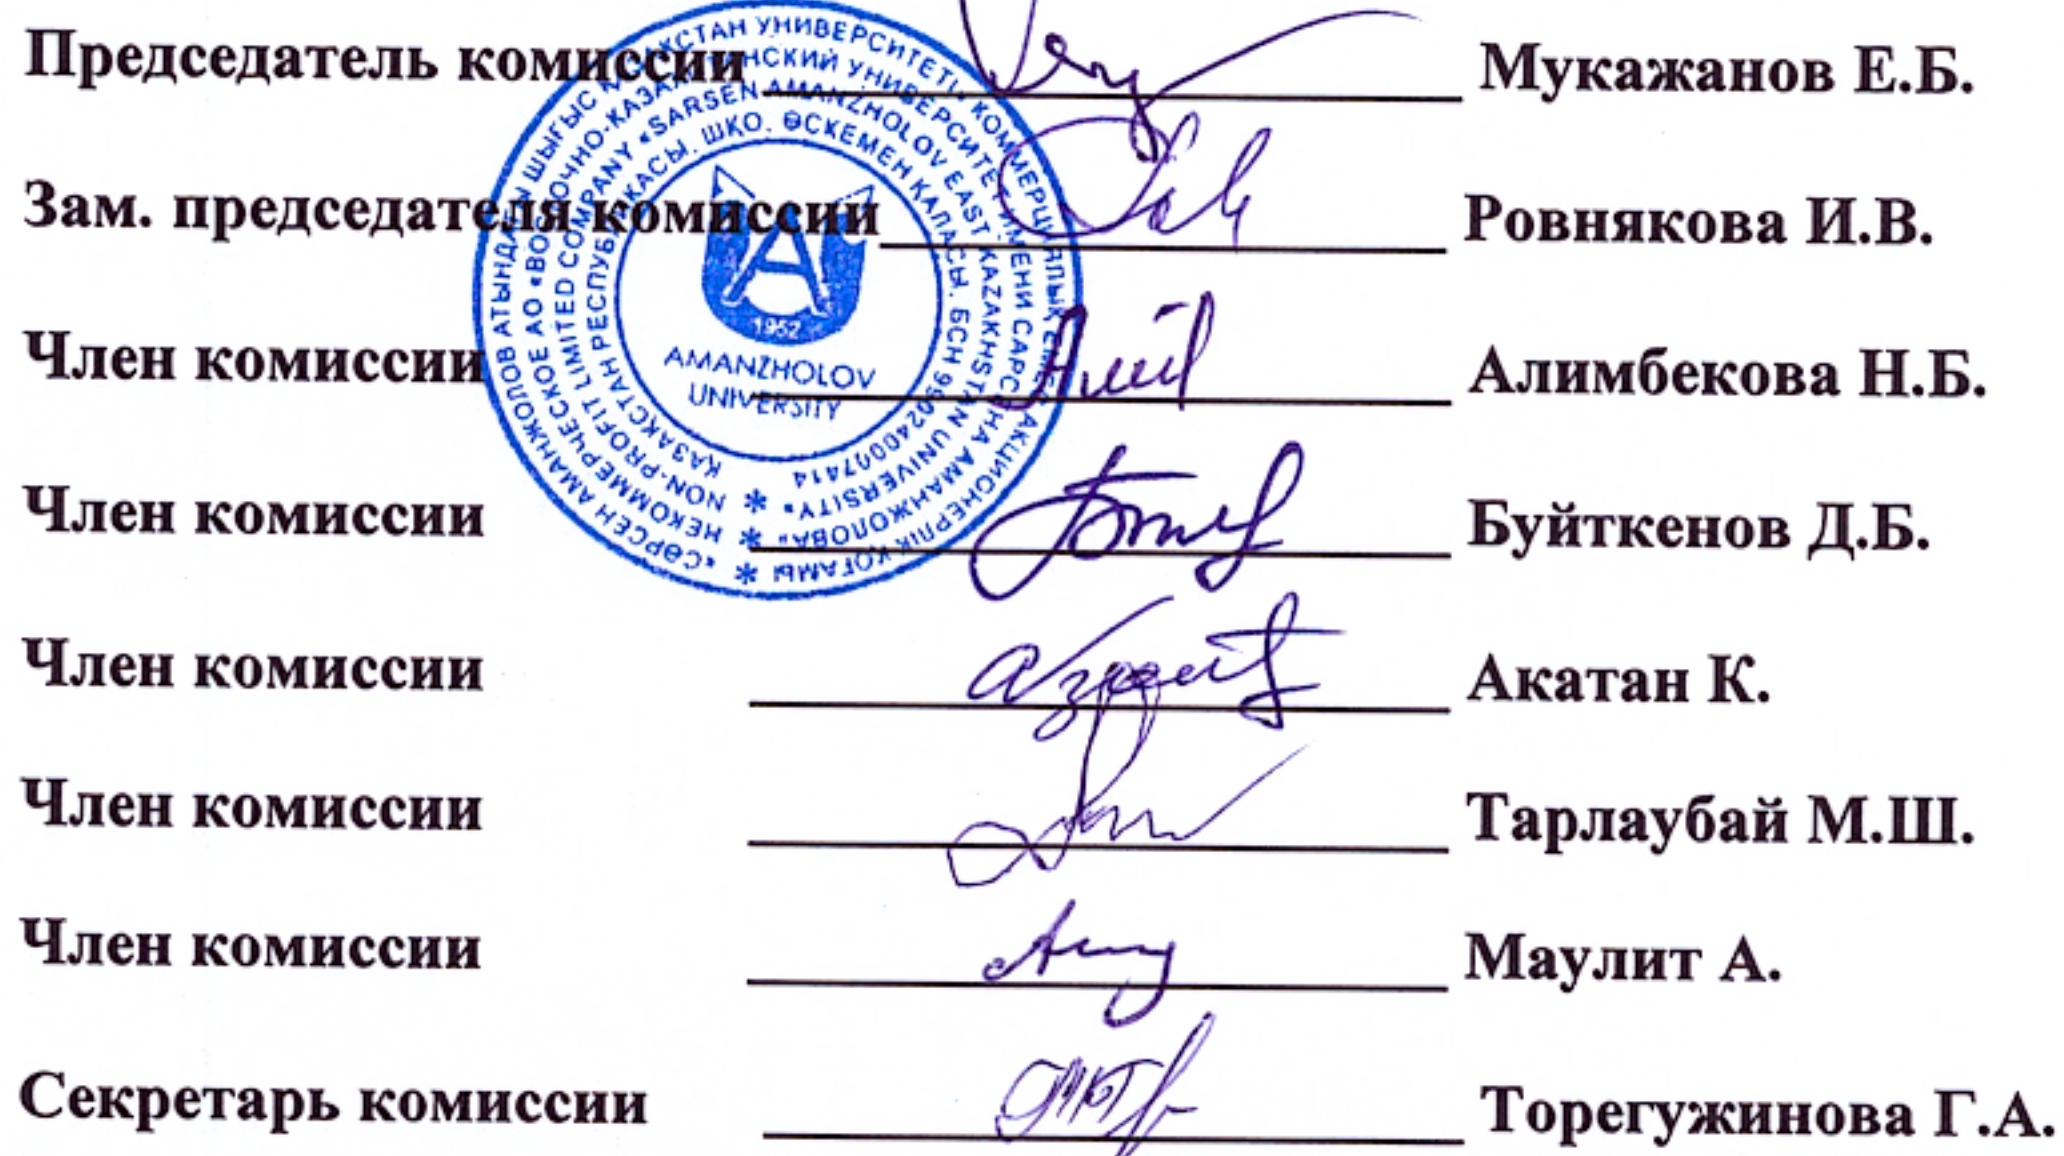 Председатель комиссии Мукажанов Е.Б.
Зам. председателя комиссии Ровнякова И.В.
Член комиссии Алимбекова Н.Б.
Член комиссии Буйткенов Д.Б.
Член комиссии Акатан К.
Член комиссии Тарлаубай М.Ш.
Член комиссии Маулит А.
Секретарь комиссии Торегужинова Г.А.
«СӘРСЕН АМАНЖОЛОВ АТЫНДАҒЫ ШЫҒЫС ҚАЗАҚСТАН УНИВЕРСИТЕТІ» КОММЕРЦИЯЛЫҚ ЕМЕС АКЦИОНЕРЛІК ҚОҒАМЫ
НЕКОММЕРЧЕСКОЕ АО «ВОСТОЧНО-КАЗАХСТАНСКИЙ УНИВЕРСИТЕТ ИМЕНИ САРСЕНА АМАНЖОЛОВА»
NON-PROFIT LIMITED COMPANY «SARSEN AMANZHOLOV EAST KAZAKHSTAN UNIVERSITY»
ҚАЗАҚСТАН РЕСПУБЛИКАСЫ, ШҚО, ӨСКЕМЕН ҚАЛАСЫ, БСН 990240007414
1952
AMANZHOLOV
UNIVERSITY